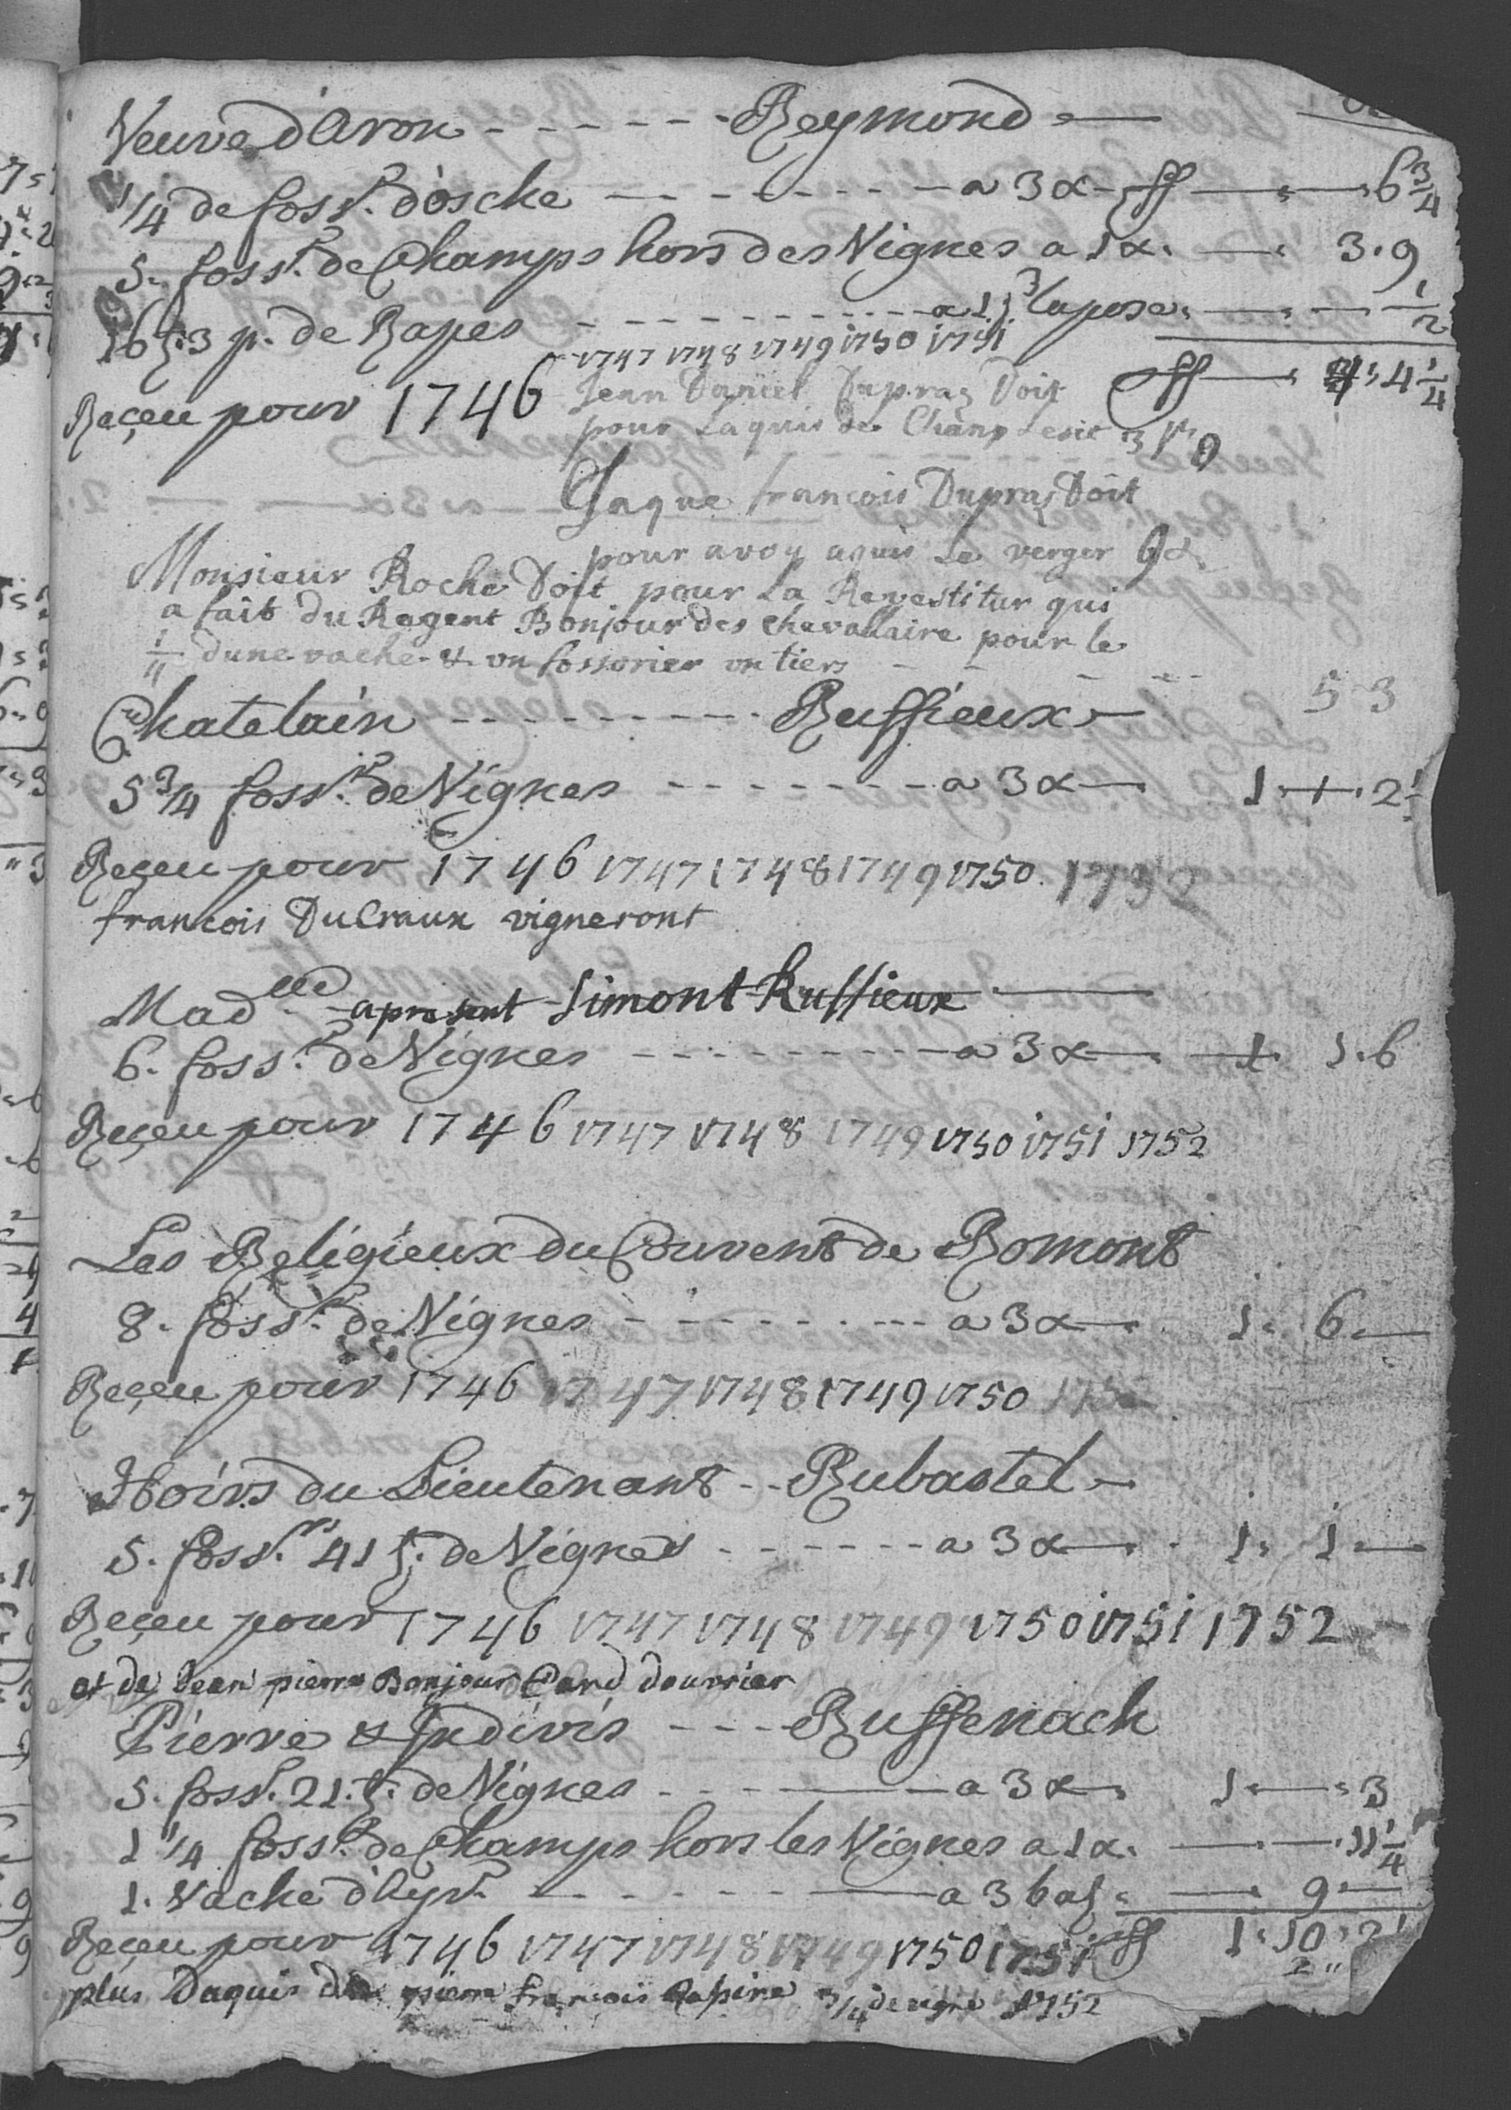 Veuve d'Aron - - - - - - Reymond
1/4 de foss.r d'oscke - - - - - - - a 3 x - ff — — 6 3/4
5. foss.r de Champs hors des Vignes a 1 x. — 3 . 9
16 t. 3 p. de Rapes - - - - - - - la pose. — — 1/2
1747 1748 1749 1750 1751
Reçeu pour 1746 ff — 4 1/4
Jean Daniel Dupraz Doit
pour Laquis de Champ Lesit 3
Jaque francois Dupraz Doit
pour avoy aquis Le verger 9 x
Monsieur Roche Doit pour La Revestitur qui
a fait du Regent Bonjour des chevallaire pour le
dune vache & un fossorier un tiers - - - 5 3
Chatelain - - - - - - - Ruffieux
5 3/4 foss.rs de Vignes - - - - - - a 3 x — 1 . + . 2 1/
Reçeu pour 1746 1747 1748 1749 1750. 1752
francois DuCraux vigneront
Mad.lle apresent Simont Ruffieux
6. foss.r de Vignes - - - - - - - a 3 x — 1. 1 . 6
Reçeu pour 1746 1747 1748 1749 1750 1751 1752
Les Religieux du Couvent de Romont
8. foss.rs de Vignes - - - - - - - a 3 x — 1. 6. —
Reçeu pour 1746 1747 1748 1749 1750
Hoirs du Lieutenant - - Rubatel
5. foss.rs 41 t. de Vignes - - - - - - a 3 x — 1. 1 . —
Reçeu pour 1746 1747 1748 1749 1750 1751 1752
et de Jean pierre Bonjour
Pierre & Indivis - - - Ruffenach
5. foss.r 21. t. de Vignes - - — a 3 x — 1 — . 3
1 1/4 foss.r de Champs hors les Vignes a 1 x. — — . 11 1/4
1. Vache d'hyv.r - - - - — a 3 baz. — 9 . —
Reçeu pour 1746 1747 1748 1749 1750 1751 ff 1 . 10 . 2
plus Daquis pierre francois 3/4 de vigne 1752